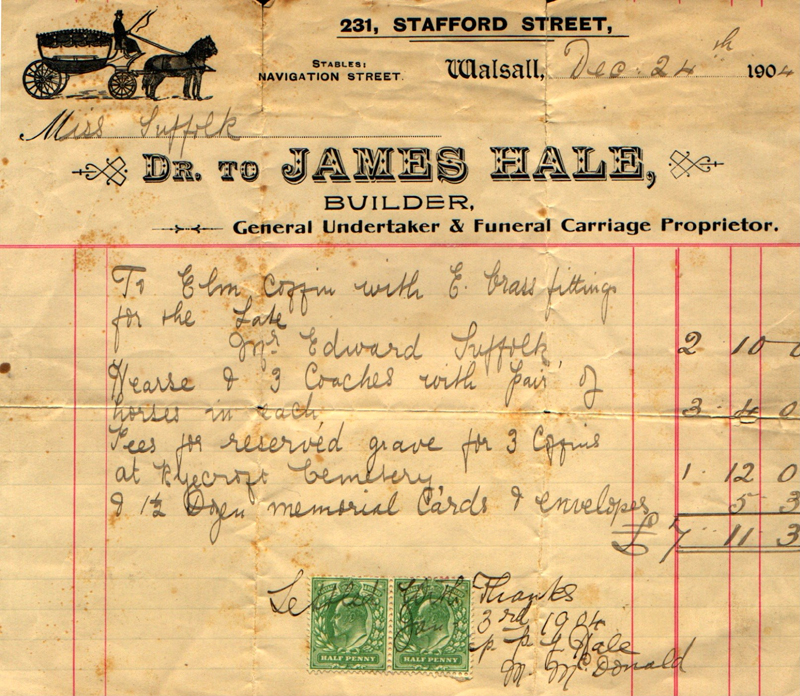 231, STAFFORD STREET,
STABLES:
NAVIGATION STREET.
Walsall, Dec. 24th 1904
Miss Suffolk
DR. TO JAMES HALE,
BUILDER,
General Undertaker & Funeral Carriage Proprietor.
To Elm Coffin with E. brass fittings
for the Late
Mr Edward Suffolk, 2 10 0
Hearse & 3 Coaches with pair of
horses in each 3 4 0
Fees for reserved grave for 3 Coffins
at Ryecroft Cemetery, 1 12 0
& 1½ Dozen memorial Cards & envelopes 5 3
£ 7 11 3
Settled With Thanks
Jan 3rd 1904
p p J Hale
M. McDonald
HALF PENNY HALF PENNY